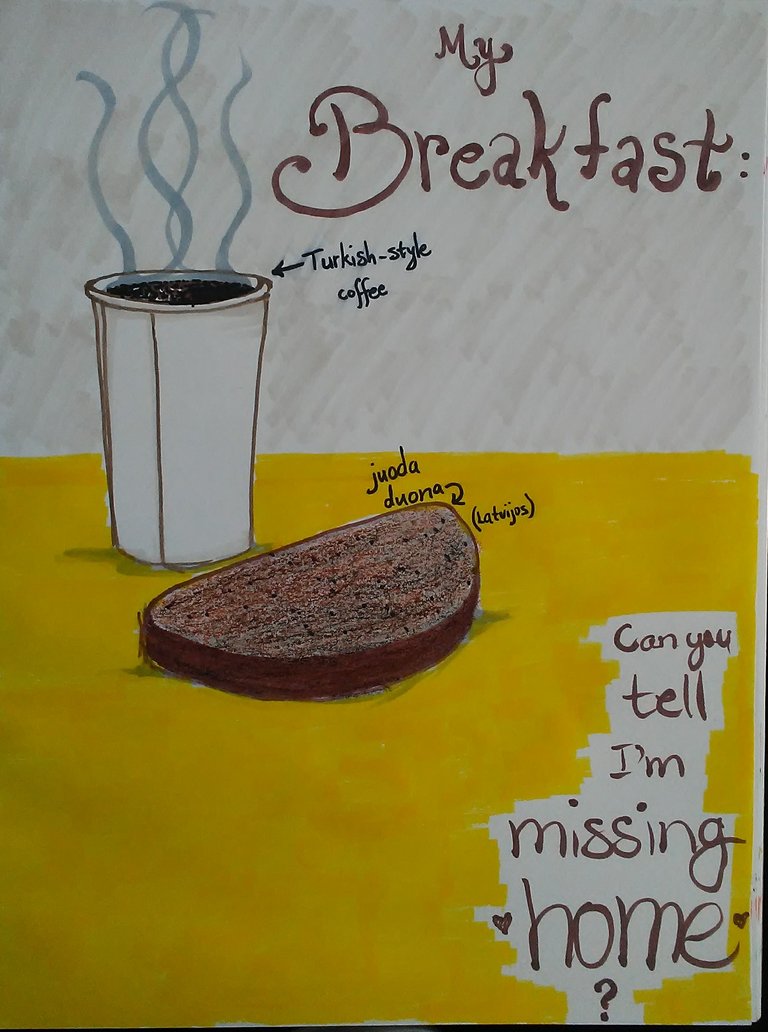 My
Breakfast:
Turkish-style
coffee
juoda
duona
(Latvijos)
Can you
tell
I'm
missing
home
?